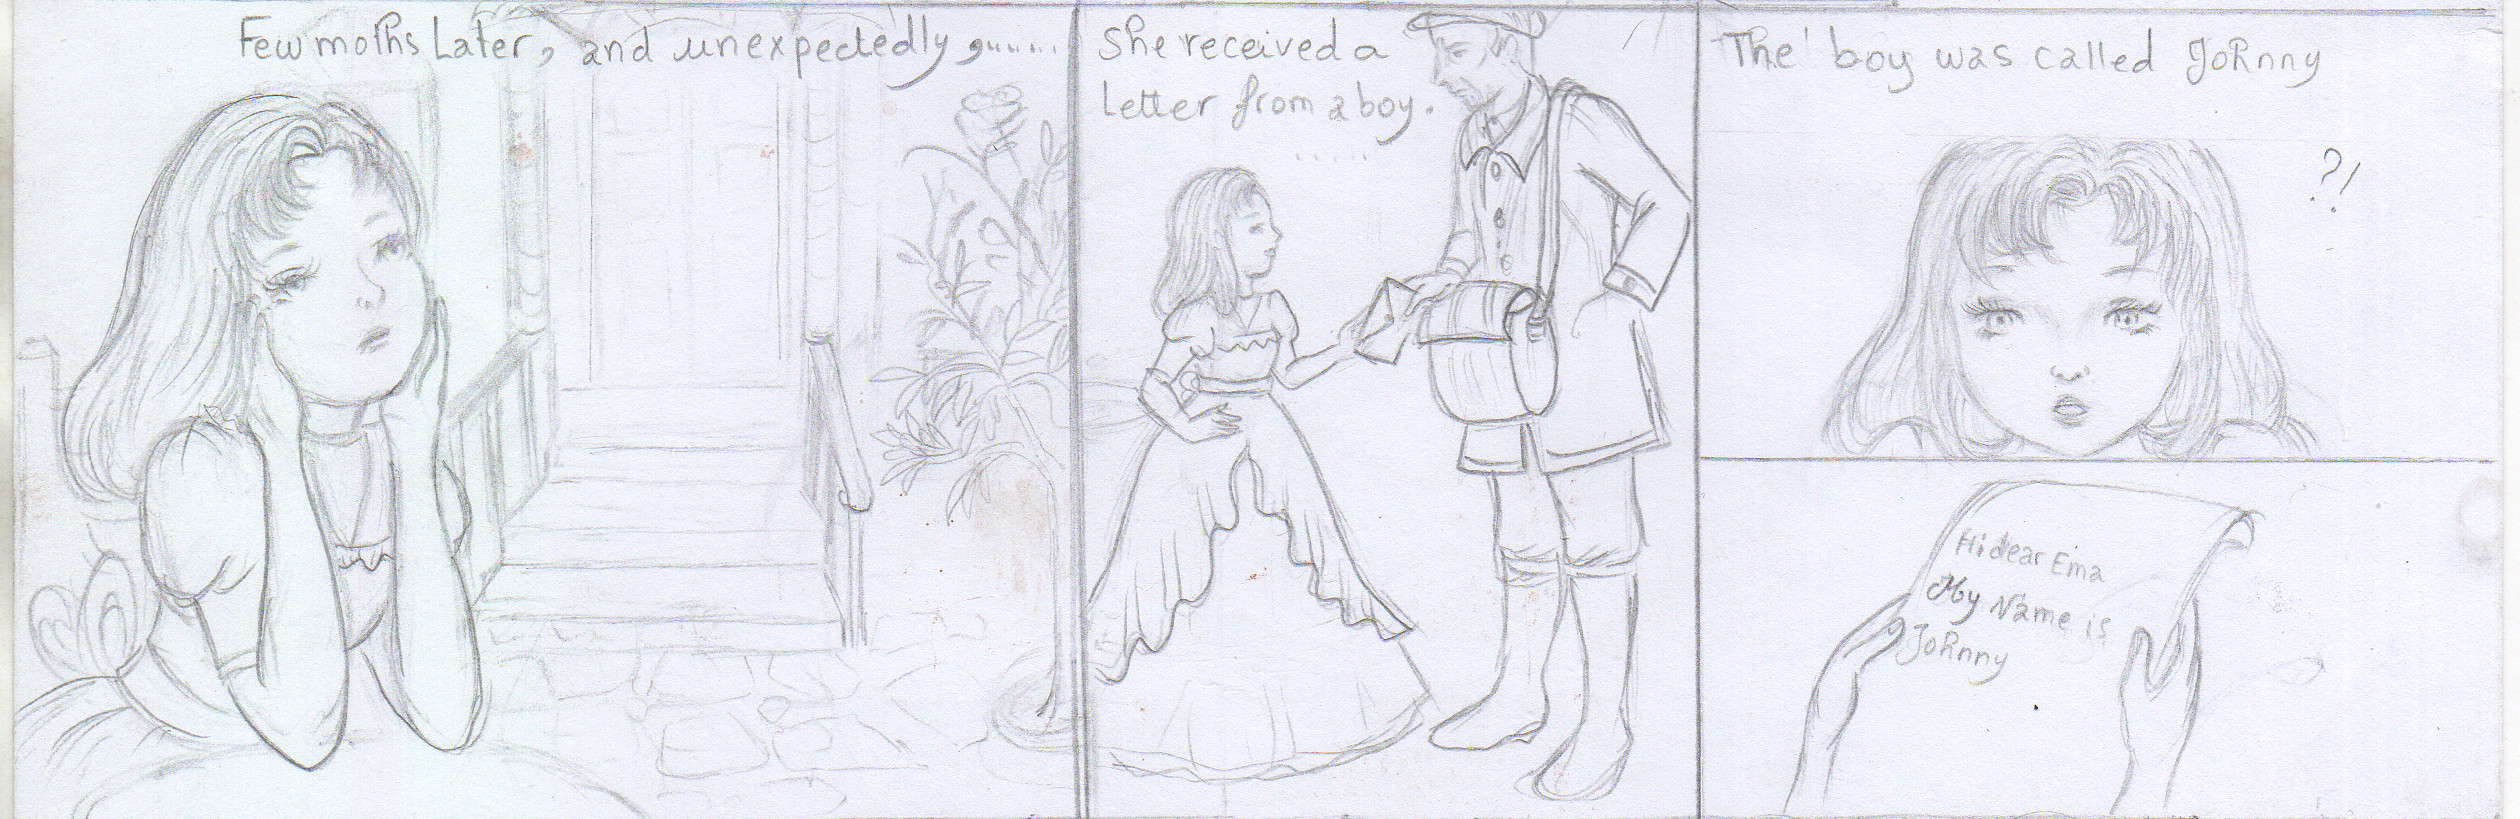 Few moths Later, and unexpectedly,......
She received a
Letter from a boy.
.....
The boy was called Johnny
?!
Hi dear Ema
My Name is
Johnny